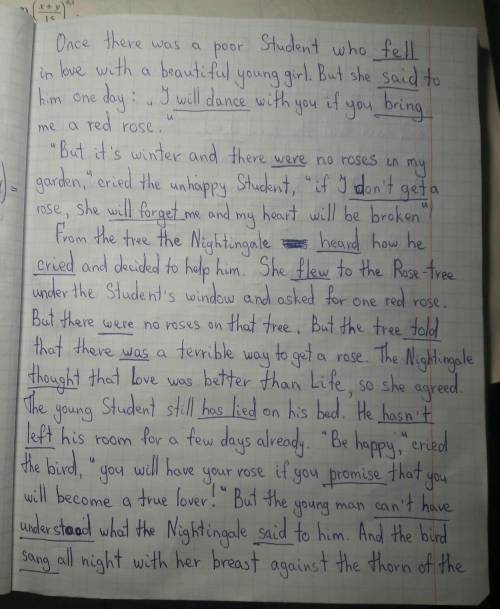 Once there was a poor Student who fell
in love with a beautiful young girl. But she said to
him one day: „I will dance with you if you bring
me a red rose."
"But it's winter and there were no roses in my
garden," cried the unhappy Student, "if I don't get a
rose, she will forget me and my heart will be broken"
From the tree the Nightingale heard how he
cried and decided to help him. She flew to the Rose-tree
under the Student's window and asked for one red rose.
But there were no roses on that tree. But the tree told
that there was a terrible way to get a rose. The Nightingale
thought that Love was better than Life, so she agreed.
The young Student still has lied on his bed. He hasn't
left his room for a few days already. "Be happy," cried
the bird, "you will have your rose if you promise that you
will become a true lover!" But the young man can't have
understood what the Nightingale said to him. And the bird
sang all night with her breast against the thorn of the